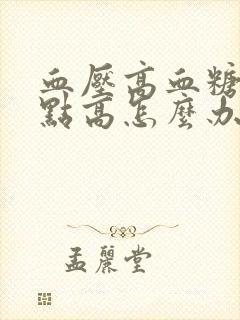 血壓高血糖
點高怎麼办
孟麗堂